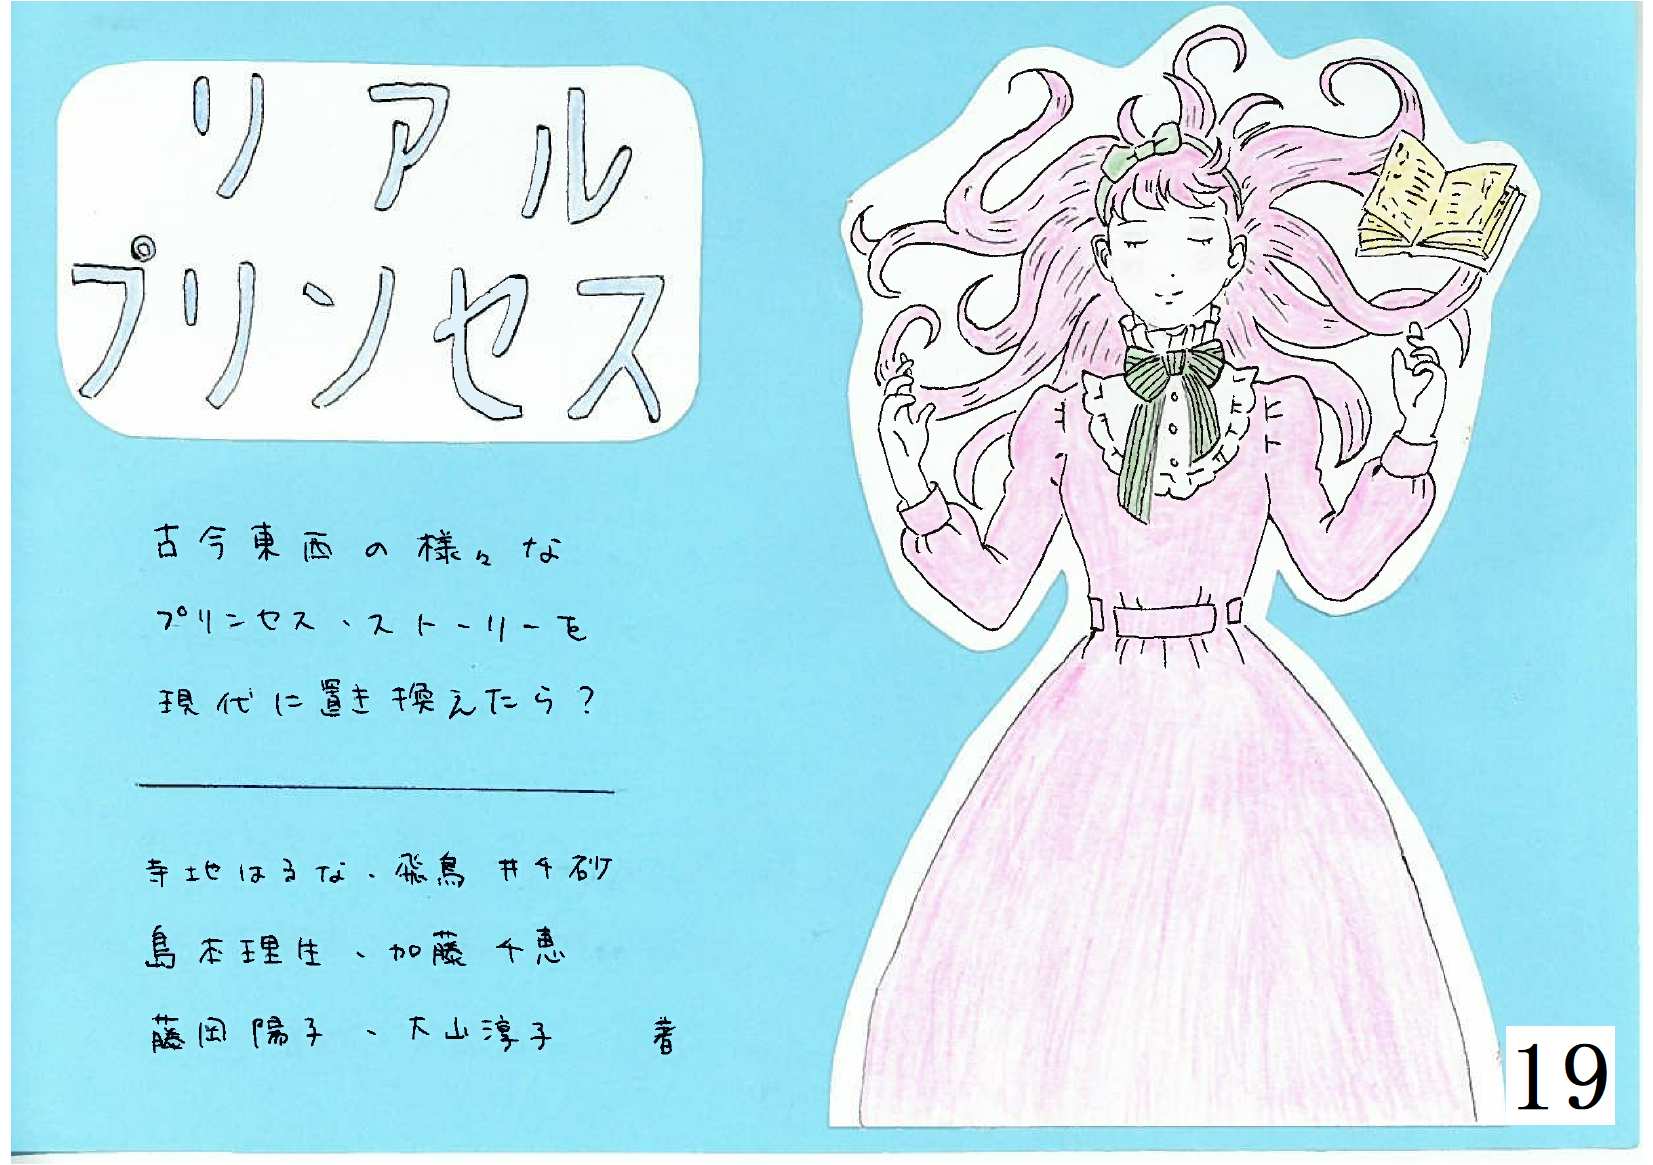 リアル
プリンセス
古今東西の様々な
プリンセス、ストーリーを
現代に置き換えたら?
寺地はるな、飛鳥井千砂
島本理生、加藤千恵
藤岡陽子、大山淳子 著
19